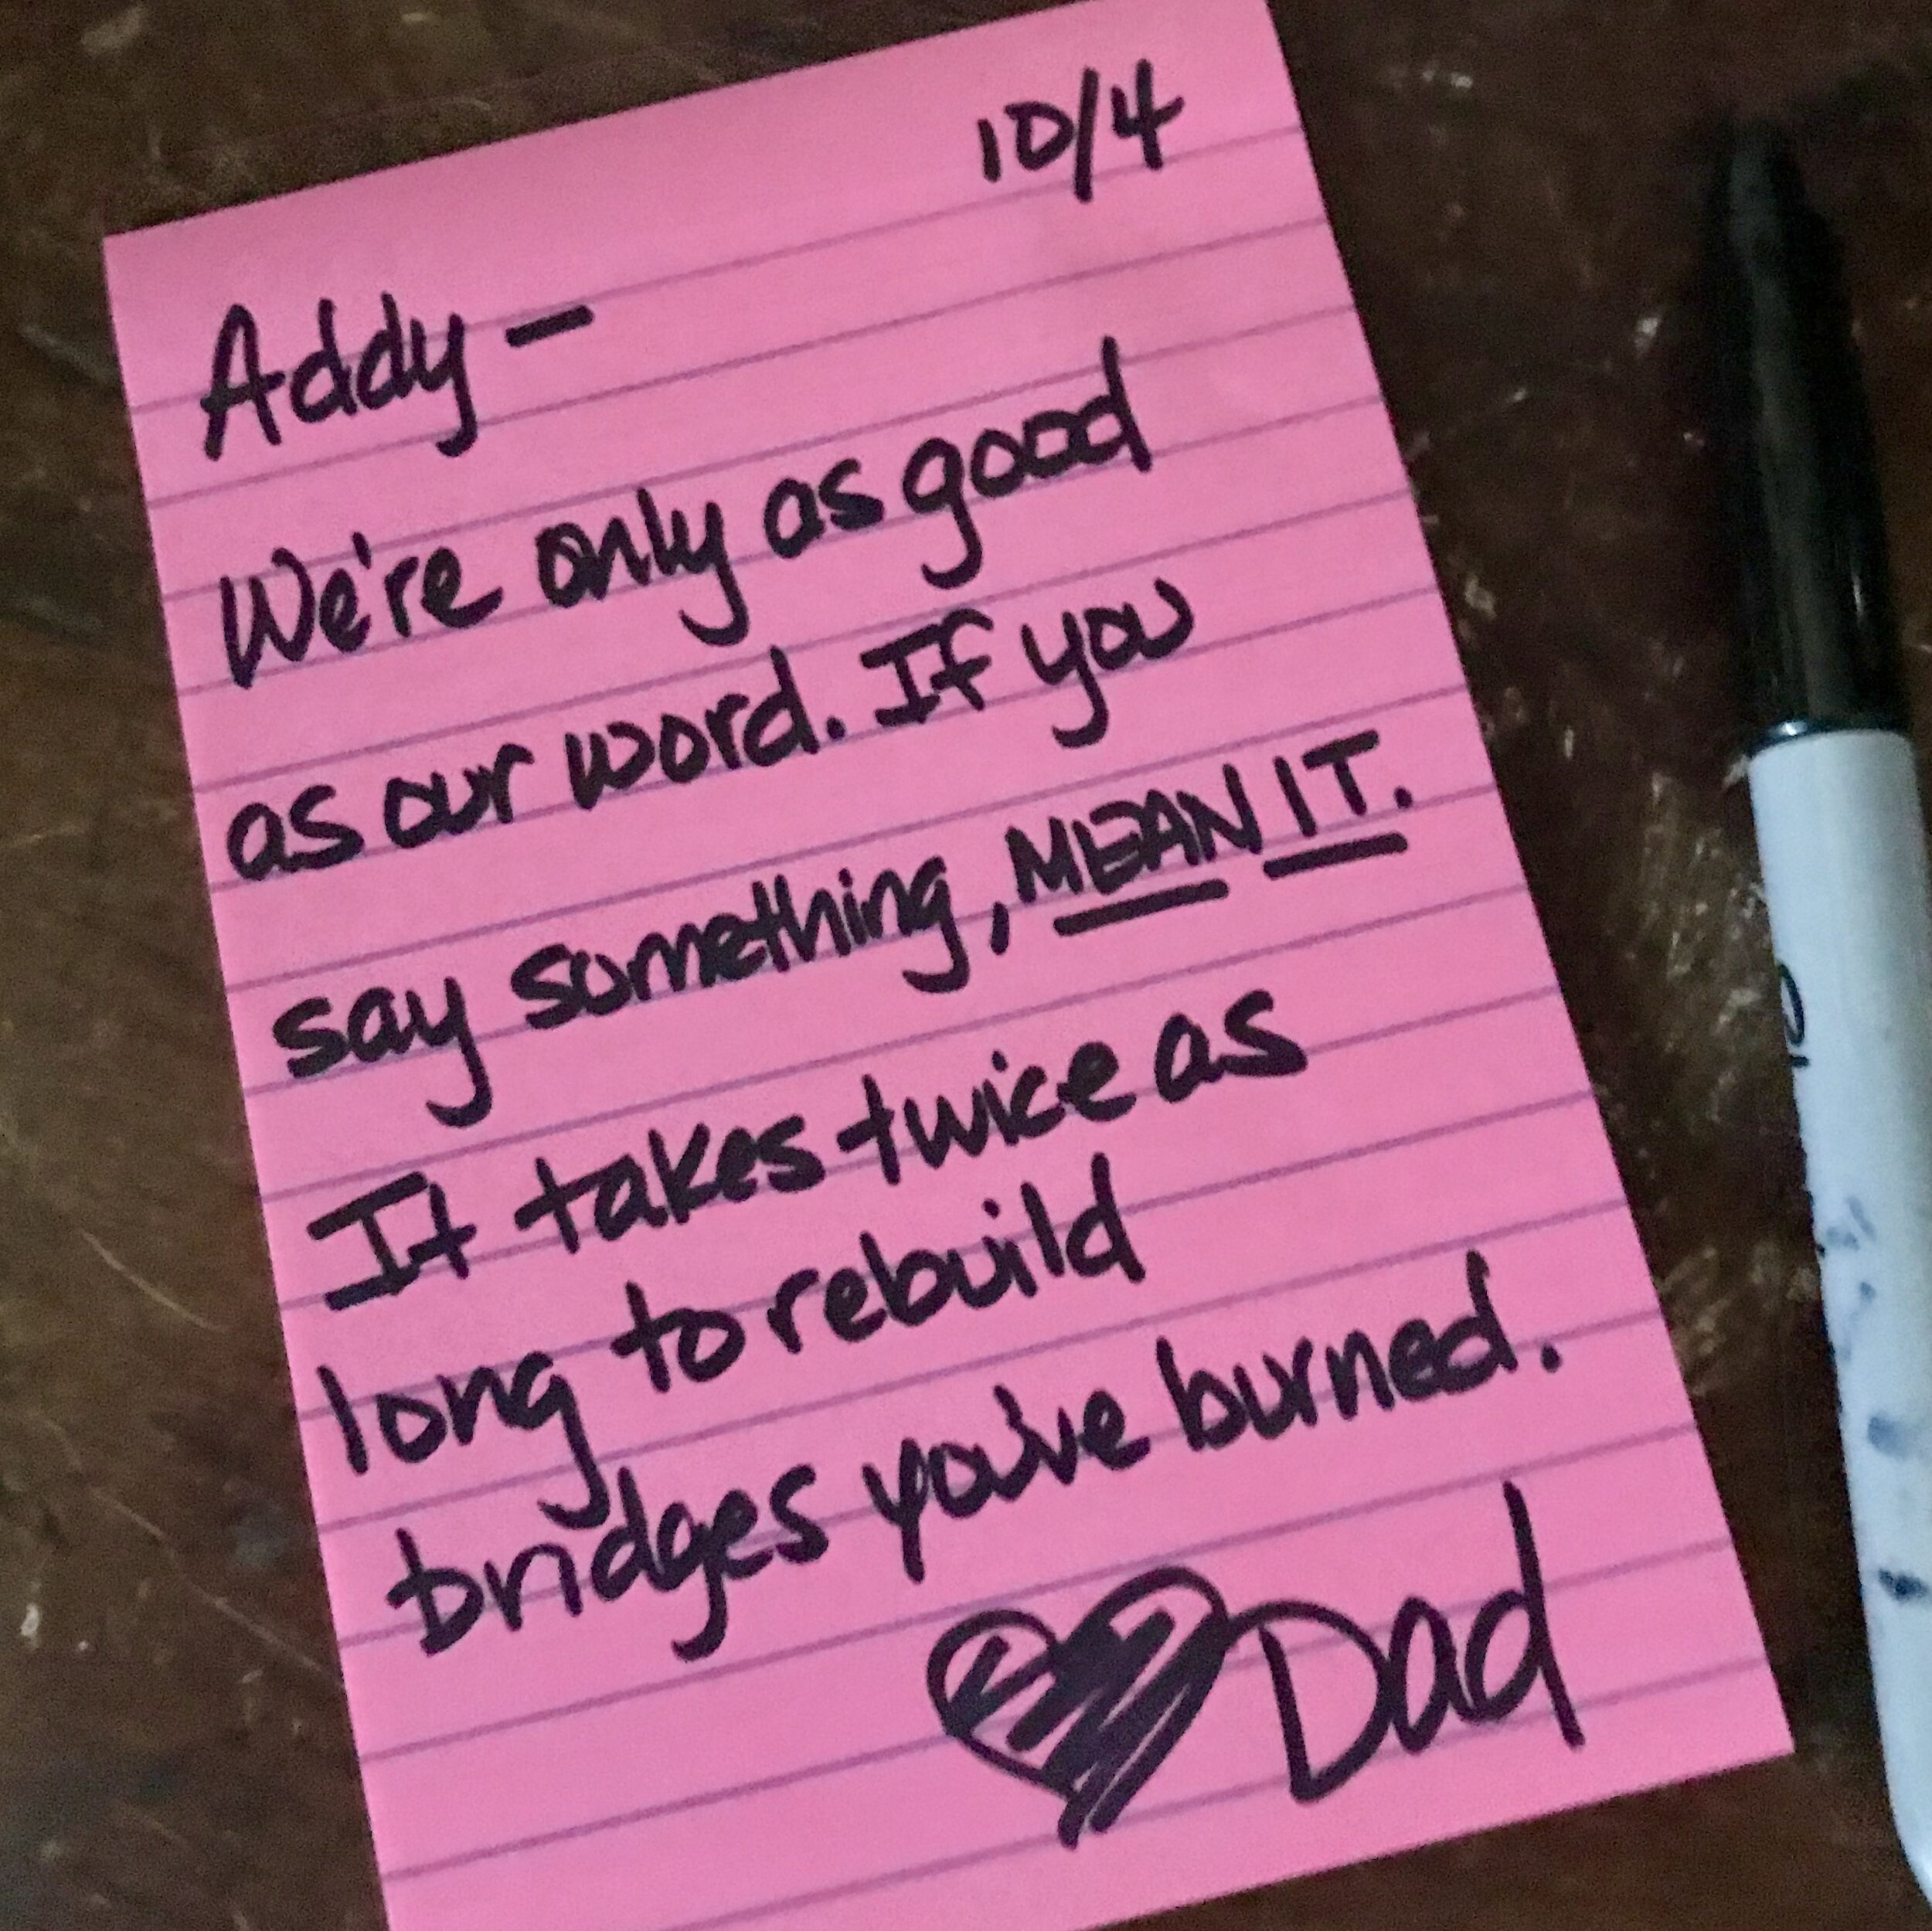 10/4
Addy —
We're only as good
as our word. If you
say something, MEAN IT.
It takes twice as
long to rebuild
bridges you've burned.
Dad